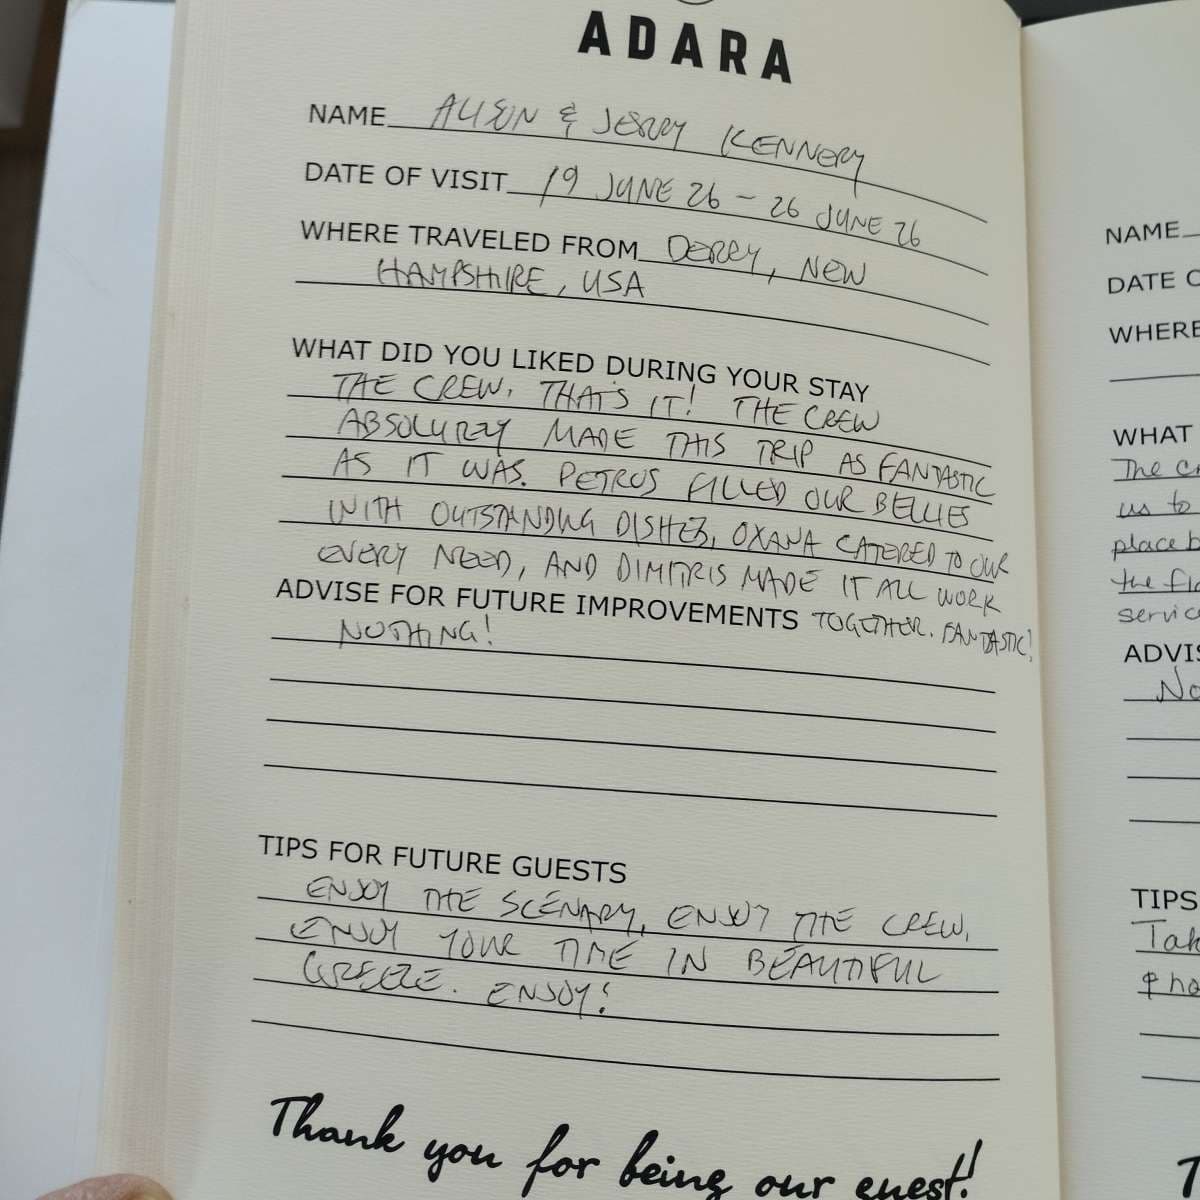 ADARA
NAME ALISON & JERRY KENNERY
DATE OF VISIT 19 JUNE 26 - 26 JUNE 26
WHERE TRAVELED FROM DERRY, NEW
HAMPSHIRE, USA
WHAT DID YOU LIKED DURING YOUR STAY
THE CREW. THAT'S IT! THE CREW
ABSOLUTELY MADE THIS TRIP AS FANTASTIC
AS IT WAS. PETROS FILLED OUR BELLIES
WITH OUTSTANDING DISHES, OXANA CATERED TO OUR
EVERY NEED, AND DIMITRIS MADE IT ALL WORK
ADVISE FOR FUTURE IMPROVEMENTS TOGETHER. FANTASTIC!
NOTHING!
TIPS FOR FUTURE GUESTS
ENJOY THE SCENARY, ENJOY THE CREW,
ENJOY YOUR TIME IN BEAUTIFUL
GREECE. ENJOY!
Thank you for being our guest!
NAME
DATE O
WHERE
WHAT
The c
us to
place b
the fl
servic
ADVIS
No
TIPS
Tak
T